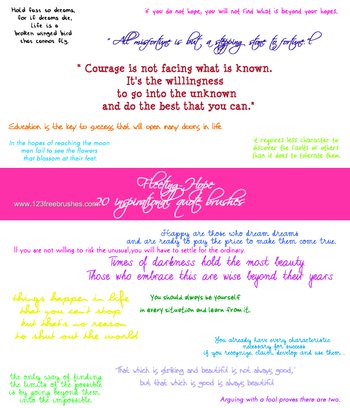 Hold fast to dreams,
for if dreams die,
Life is a
broken winged bird
that cannot fly.
if you do not hope, you will not find what is beyond your hopes.
" All misfortune is but a stepping stone to fortune. "
" Courage is not facing what is known.
It's the willingness
to go into the unknown
and do the best that you can."
Education is the key to success that will open many doors in life
In the hopes of reaching the moon
men fail to see the flowers
that blossom at their feet.
it requires less character to
discover the faults of others
than it does to tolerate them.
Fleeting Hope
www.123freebrushes.com
20 inspirational quote brushes
Happy are those who dream dreams
and are ready to pay the price to make them come true.
If you are not willing to risk the unusual, you will have to settle for the ordinary.
Times of darkness hold the most beauty
Those who embrace this are wise beyond their years
things happen in life
that you can't stop
but that's no reason
to shut out the world
You should always be yourself
in every situation and learn from it.
You already have every characteristic
necessary for success
if you recognize, claim, develop and use them...
the only way of finding
the limits of the possible
is by going beyond them
into the impossible.
"That which is striking and beautiful is not always good,
but that which is good is always beautiful
Arguing with a fool proves there are two.